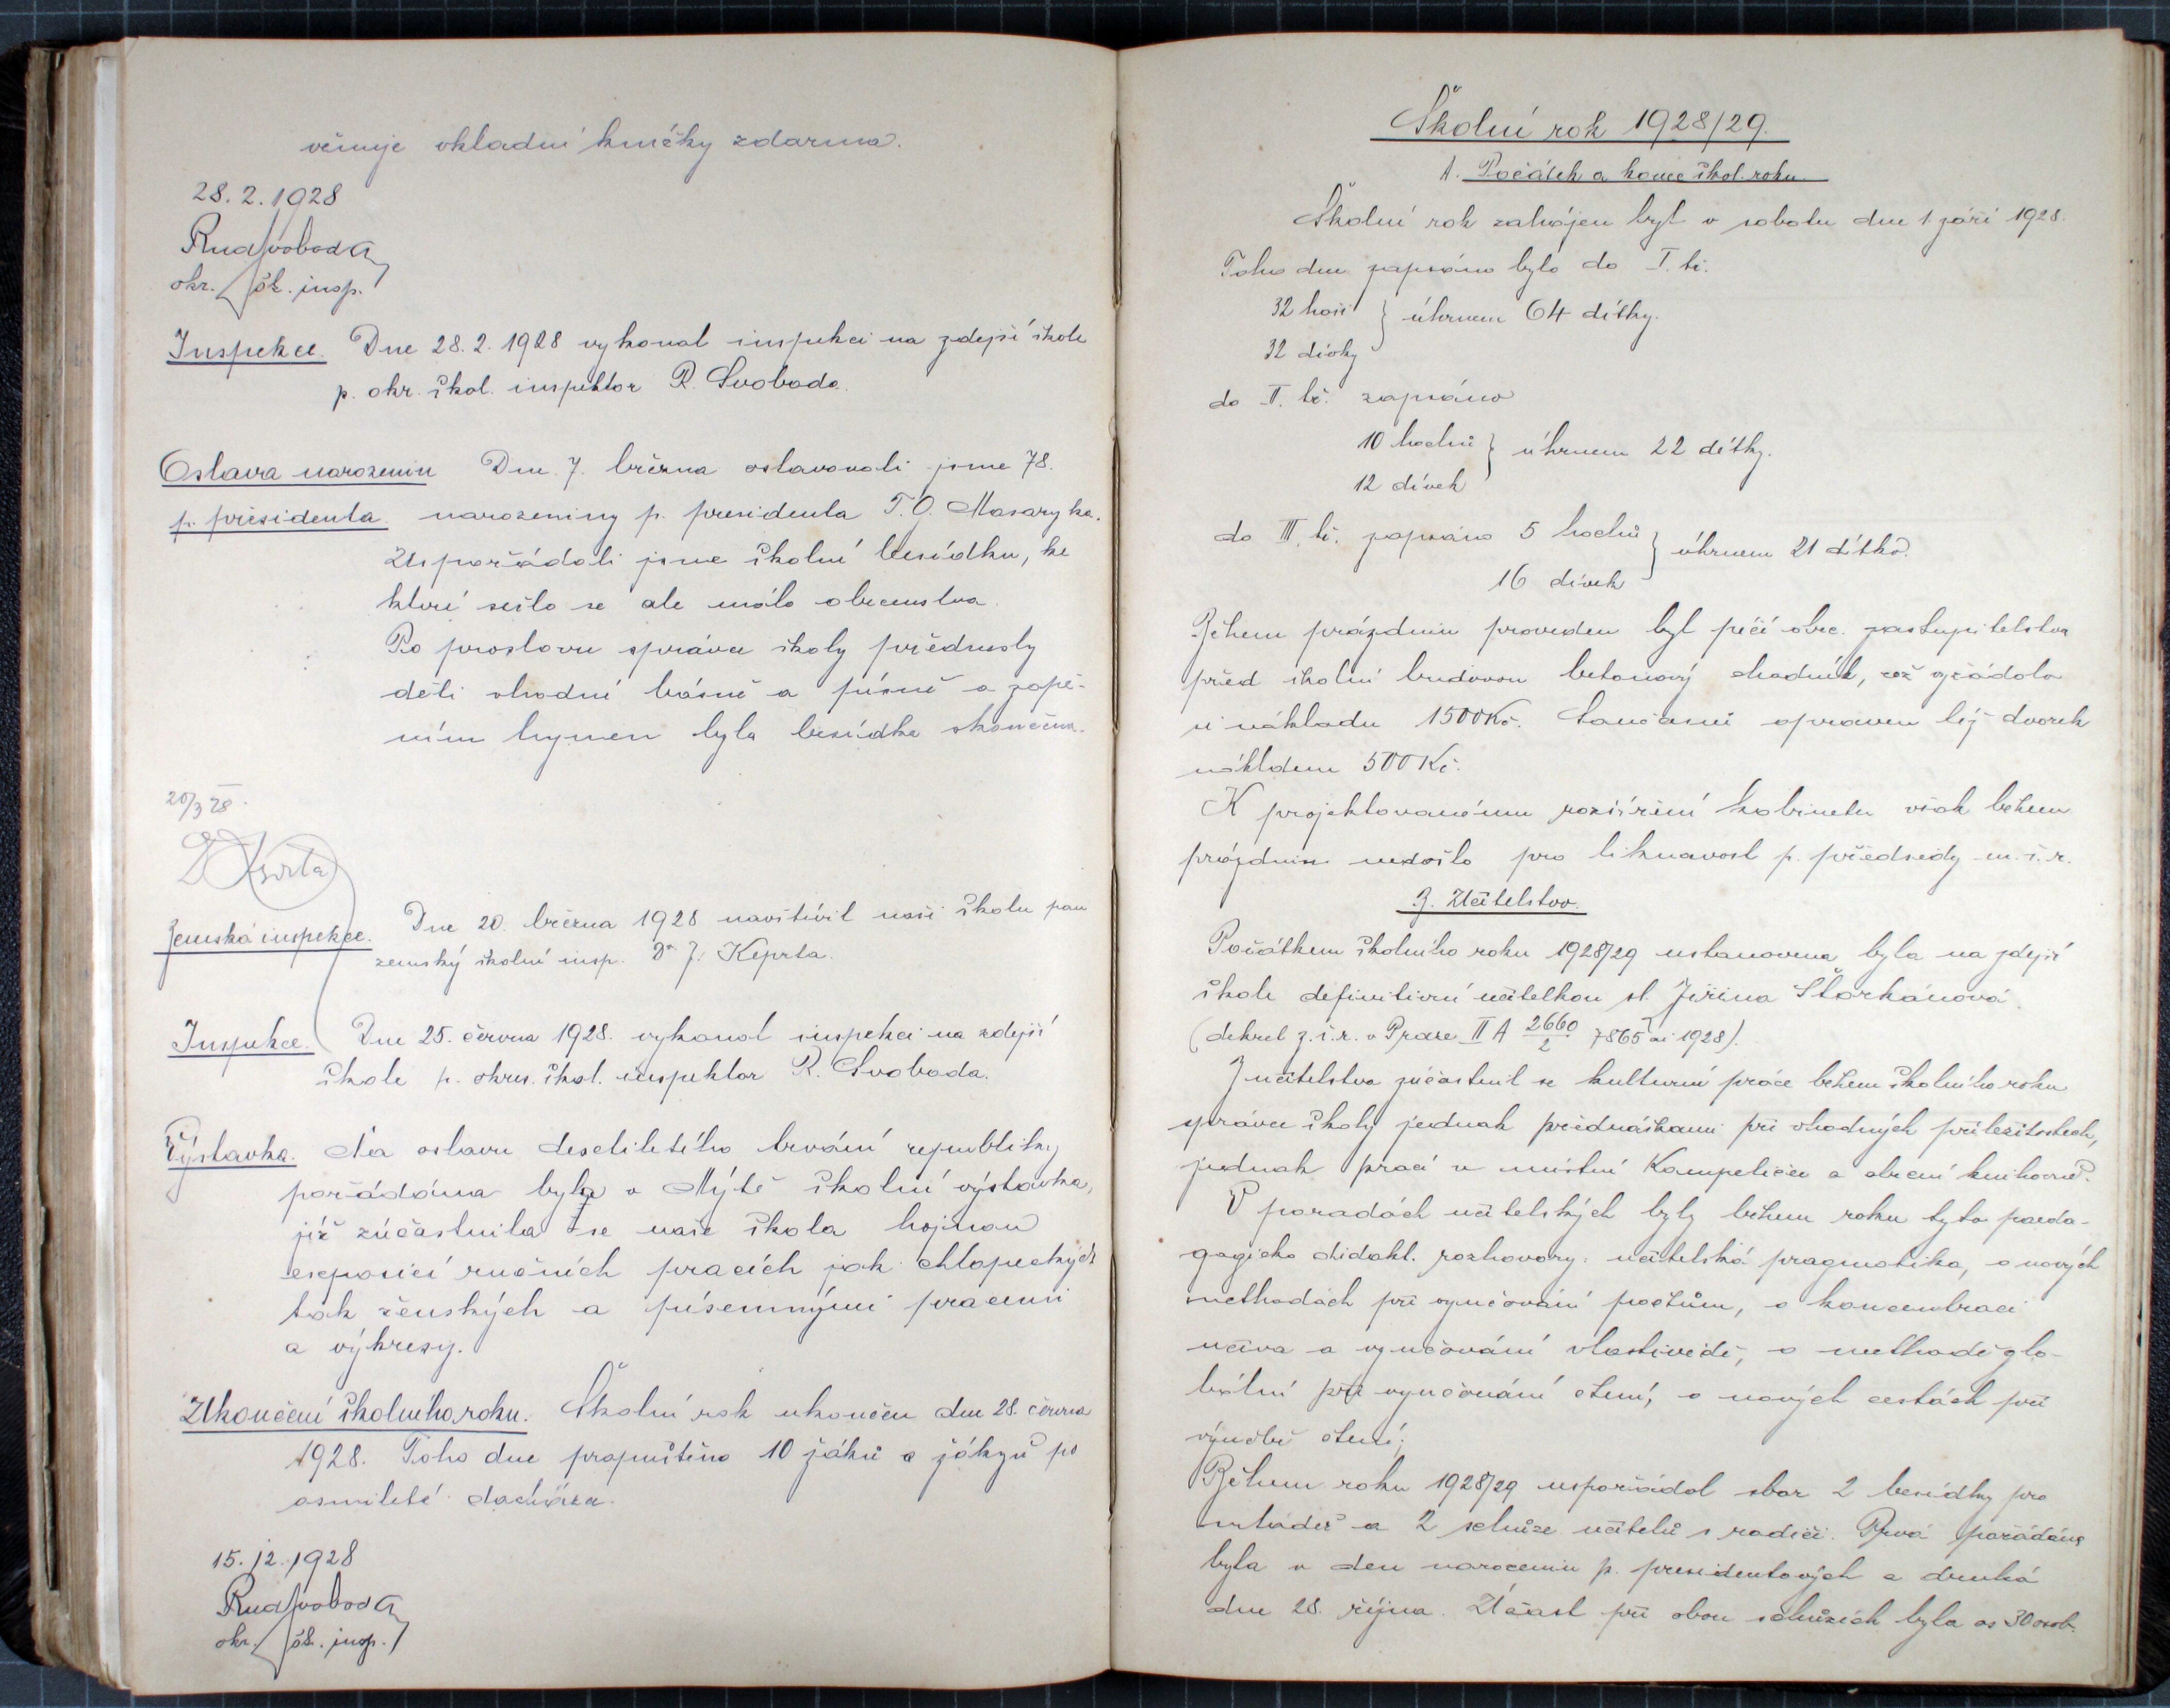 věnuje vkladní knížky zdarma.
28.2.1928
Rud Svoboda
okr. šk. insp.
Inspekce. Dne 28.2.1928 vykonal inspekci na zdejší škole
p. okr. škol. inspektor R. Svoboda.
Oslava narozenin Dne 7. března oslavovali jsme 78.
p. presidenta. narozeniny p. presidenta T.G. Masaryka.
Uspořádali jsme školní besídku, ke
které sešlo se ale málo obecenstva.
Po proslovu správce školy přednesly
děti vhodné básně a písně a zapě-
ním hymen byla besídka skončena.
20/3 28.
Dr Keprta
Zemská inspekce. Dne 20. března 1928 navštívil naši školu pan
zemský školní insp. Dr J. Keprta.
Inspekce. Dne 25. června 1928. vykonal inspekci na zdejší
škole p. okres. škol. inspektor R. Svoboda.
Výstavka. Na oslavu desetiletého trvání republiky
pořádána byla v Mýtě školní výstavka,
jíž zúčastnila se naše škola hojnou
exposicí ručních pracích jak chlapeckých
tak ženských a písemnými pracemi
a výkresy.
Ukončení školního roku. Školní rok ukončen dne 28. června
1928. Toho dne propuštěno 10 žáků a žákyň po
osmileté docházce.
15.12.1928
Rud Svoboda
okr. šk. insp.
Školní rok 1928/29.
1. Počátek a konec škol. roku.
Školní rok zahájen byl v sobotu dne 1. září 1928.
Toho dne zapsáno bylo do I. tř.
32 hoši } úhrnem 64 dítky.
32 dívky
do II. tř. zapsáno
10 hochů } úhrnem 22 dítky.
12 dívek
do III. tř. zapsáno 5 hochů } úhrnem 21 dítko.
16 dívek
Během prázdnin proveden byl péčí obec. zastupitelstva
před školní budovou betonový chodník, což vyžádalo
si nákladu 1500 Kč. Současně opraven též dvorek
nákladem 500 Kč.
K projektovanému rozšíření kabinetu však během
prázdnin nedošlo pro liknavost p. předsedy m.š.r.
2. Učitelstvo.
Počátkem školního roku 1928/29 ustanovena byla na zdejší
škole definitivní učitelkou sl. Jiřina Štorkánová
(dekret z.š.r. v Praze II A 2660/2 7865 ai 1928).
Z učitelstva zúčastnil se kulturní práce během školního roku
správce školy jednak přednáškami při vhodných příležitostech,
jednak prací v místní Kampeličce a obecní knihovně.
V poradách učitelských byly během roku tyto paeda-
gogicko didakt. rozhovory: učitelská pragmatika, o nových
methodách při vyučování počtům, o koncentraci
učiva a vyučování vlastivědě, o methodě glo-
bální při vyučování čtení, o nových cestách při
výučbě čtení;
Během roku 1928/29 uspořádal sbor 2 besídky pro
mládež a 2 schůze učitelů s rodiči. Prvá pořádána
byla v den narozenin p. presidentových a druhá
dne 28. října. Účast při obou schůzích byla as 30 osob.